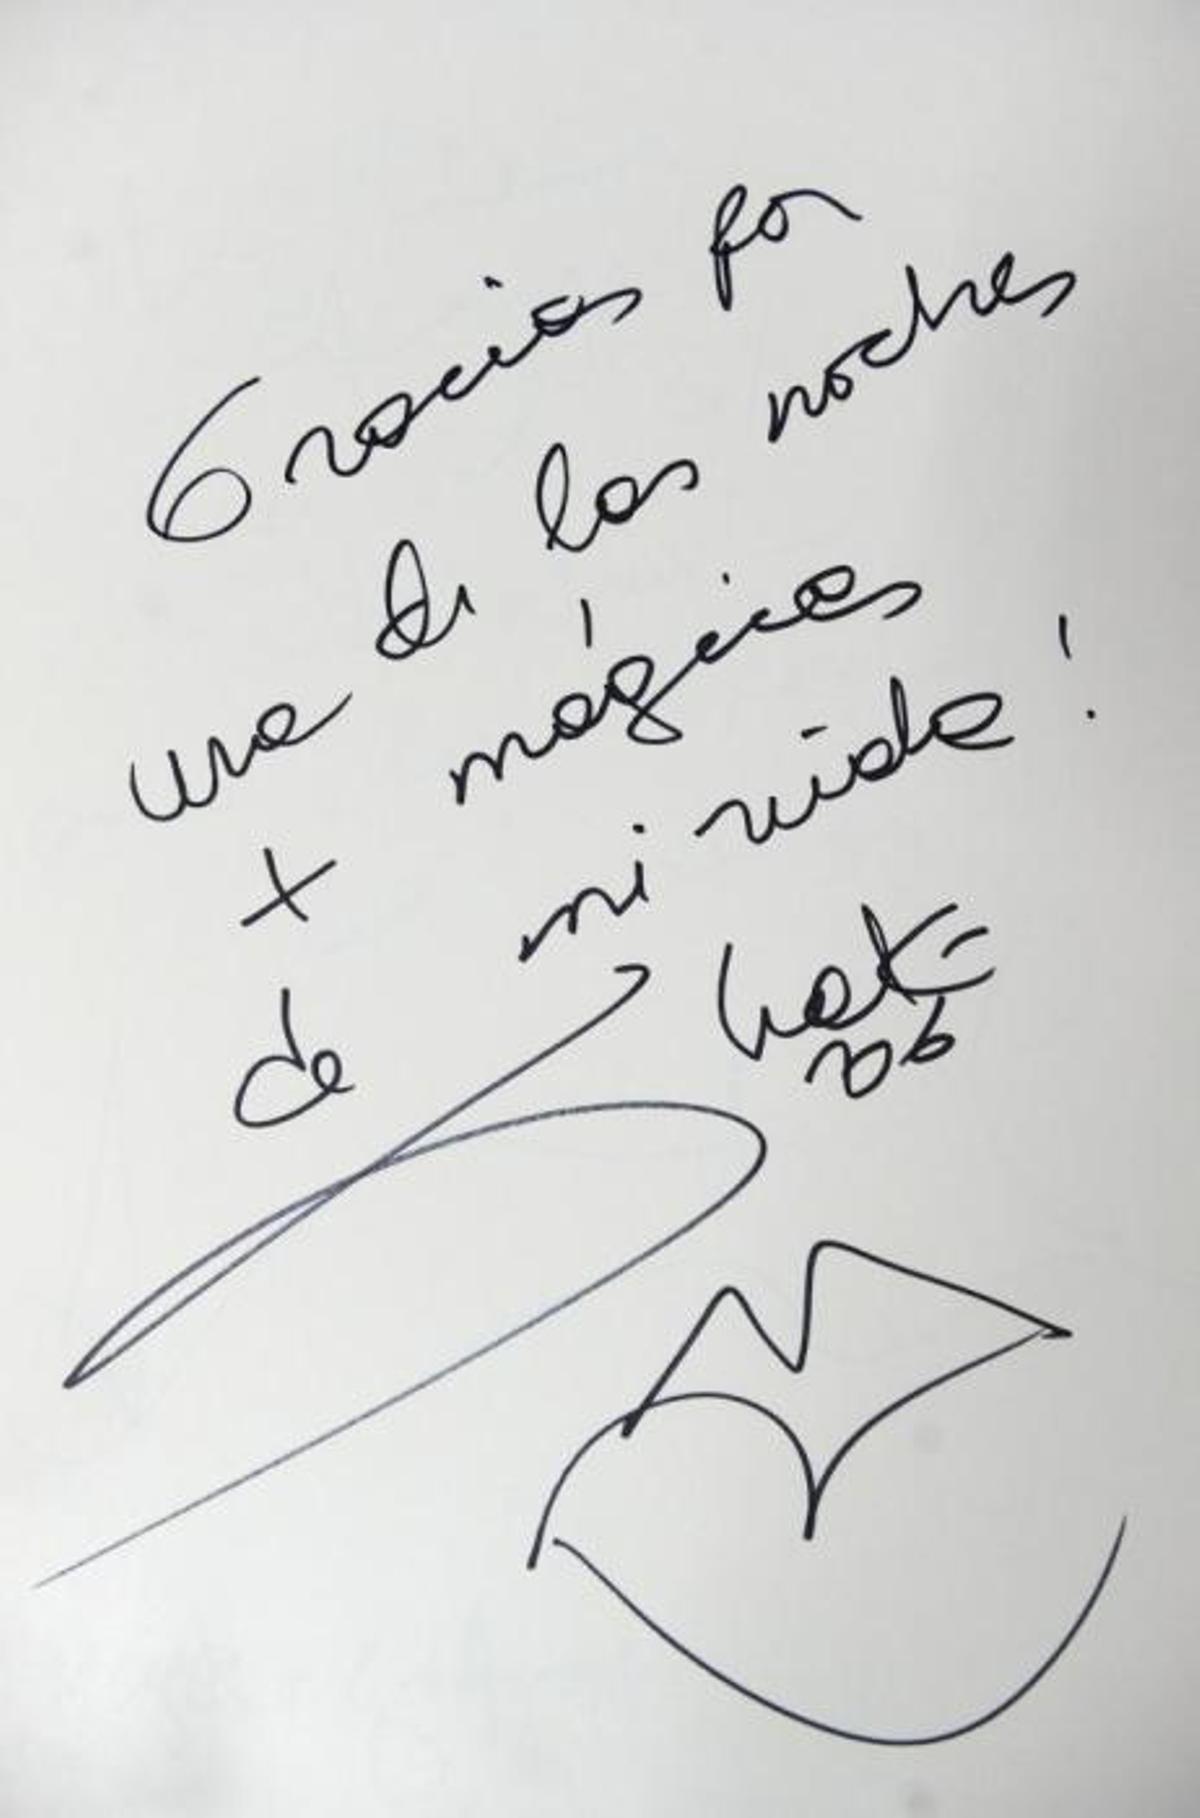 Gracias por
una de las noches
+ mágicas
de mi vida!
06